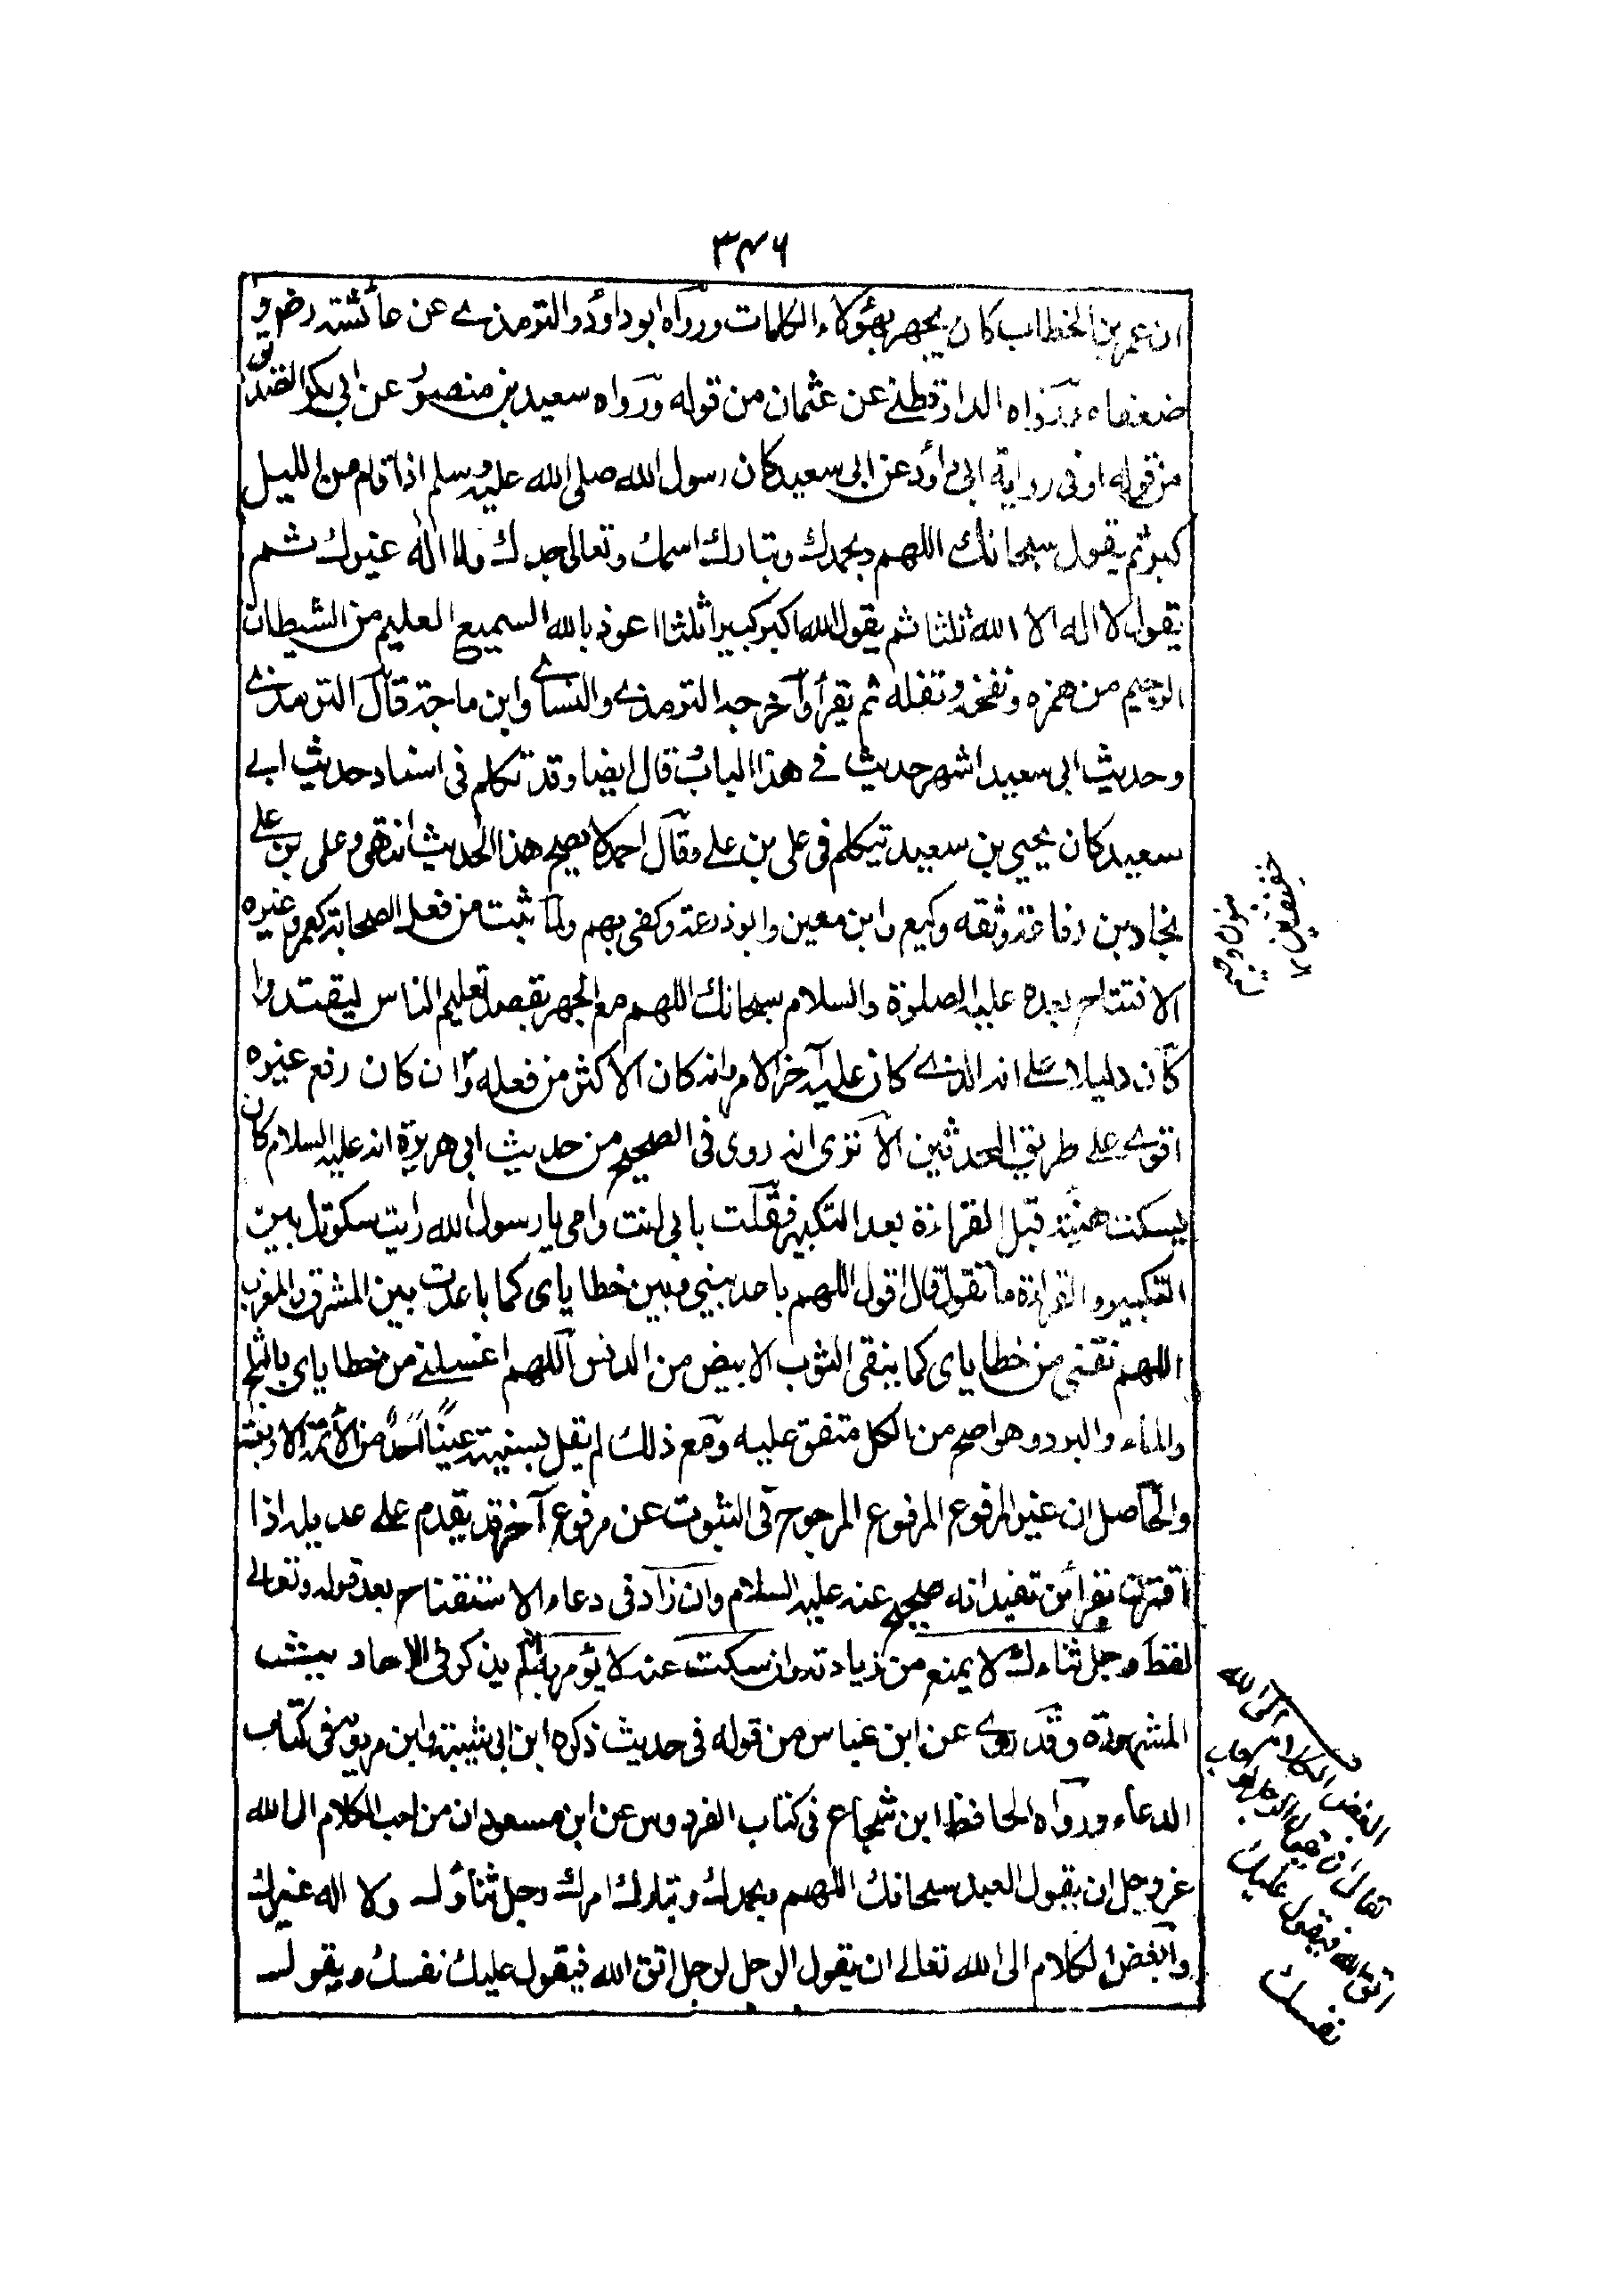 ٣٤٦
ان عمر بن الخطاب كان يجهر بهؤلاء الكلمات ورواه ابو داؤد والترمذے عن عائشة رضو
ضعفاه ورواه الدارقطنے عن عثمان من قوله ورواه سعيد بن منصور عن ابى بكر الصديق
من قوله اوفى رواية ابى داؤد عن ابى سعيد كان رسول الله صلى الله عليه وسلم اذا قام من الليل
كبر ثم يقول سبحانك اللهم وبحمدك وتبارك اسمك وتعالى جدك ولا اله غيرك ثم
يقول لا اله الا الله ثلثا ثم يقول الله اكبر كبيرا ثلثا اعوذ بالله السميع العليم من الشيطان
الرجيم من همزه ونفخه وتفله ثم يقرأ وآخرجه الترمذے والنساے وابن ماجة قال الترمذے
وحديث ابى سعيد اشهر حديث فے هذا الباب قال ايضا وقد تكلم فى اسناد حديث ابے
سعيد كان يحيى بن سعيد تيكلم فى على بن علے وقال احمد لا يصح هذا الحديث انتهى وعلى بن علے
بن نجاد بن رفاعة وثقه وكيع وابن معين وابو ذرعة وكفى بهم ولما ثبت من فعل الصحابة كعمر وغيره
الافتتاح بعده عليه الصلوة والسلام بسبحانك اللهم مع الجهر بقصد تعليم الناس ليقتدوا
كان دليلا علے انه الذے كان عليه آخر الامر وانه كان الاكثر من فعله وان كان رفع غيره
اقوے علے طريق المحدثين الا ترى انه روى فى الصحيح من حديث ابى هريرة انه عليه السلام كان
يسكت هنيئة قبل القراءة بعد التكبير فقلت بابى انت وامى يا رسول الله رايت سكوتك بين
التكبير والقراءة ما تقول قال اقول اللهم باعد بينى وبين خطاياى كما باعدت بين المشرق والمغرب
اللهم نقنى من خطاياى كما ينقى الثوب الابيض من الدنس اللهم اغسلنے من خطاياى بالثلج
والماء والبرد وهو اصح من الكل متفق عليه ومع ذلك لم يقل بسنيته عينًا احدٌ من الأئمة الاربعة
والحاصل ان غير المرفوع المرفوع المرجوح فى الثبوت عن مرفوع آخر قد يقدم علے عديله اذا
اقترن بقرائن تفيد انه صحيح عنه عليه السلام وان زاد فى دعاء الاستفتاح بعد قوله وتعالے
لفظ وجل ثناءك لا يمنع من زيادته وان سكت عنه لا يؤمر به لانه لم يذكر فى الاحاديث
المشهورة وقد روے عن ابن عباس من قوله فى حديث ذكره ابن ابى شيبة وابن مردويه فى كتاب
الدعاء ورواه الحافظ ابن شجاع فى كتاب الفردوس عن ابن مسعود ان من احب الكلام الى الله
عزوجل ان يقول العبد سبحانك اللهم وبحمدك وتبارك امرك وجل ثناؤك ولا اله غيرك
وابغض الكلام الى الله تعالے ان يقول الرجل لرجل اتق الله فيقول عليك نفسك ويقول
ابغض الكلام الى الله
تعالى ان يقال
اتق الله فيقول عليك
نفسك